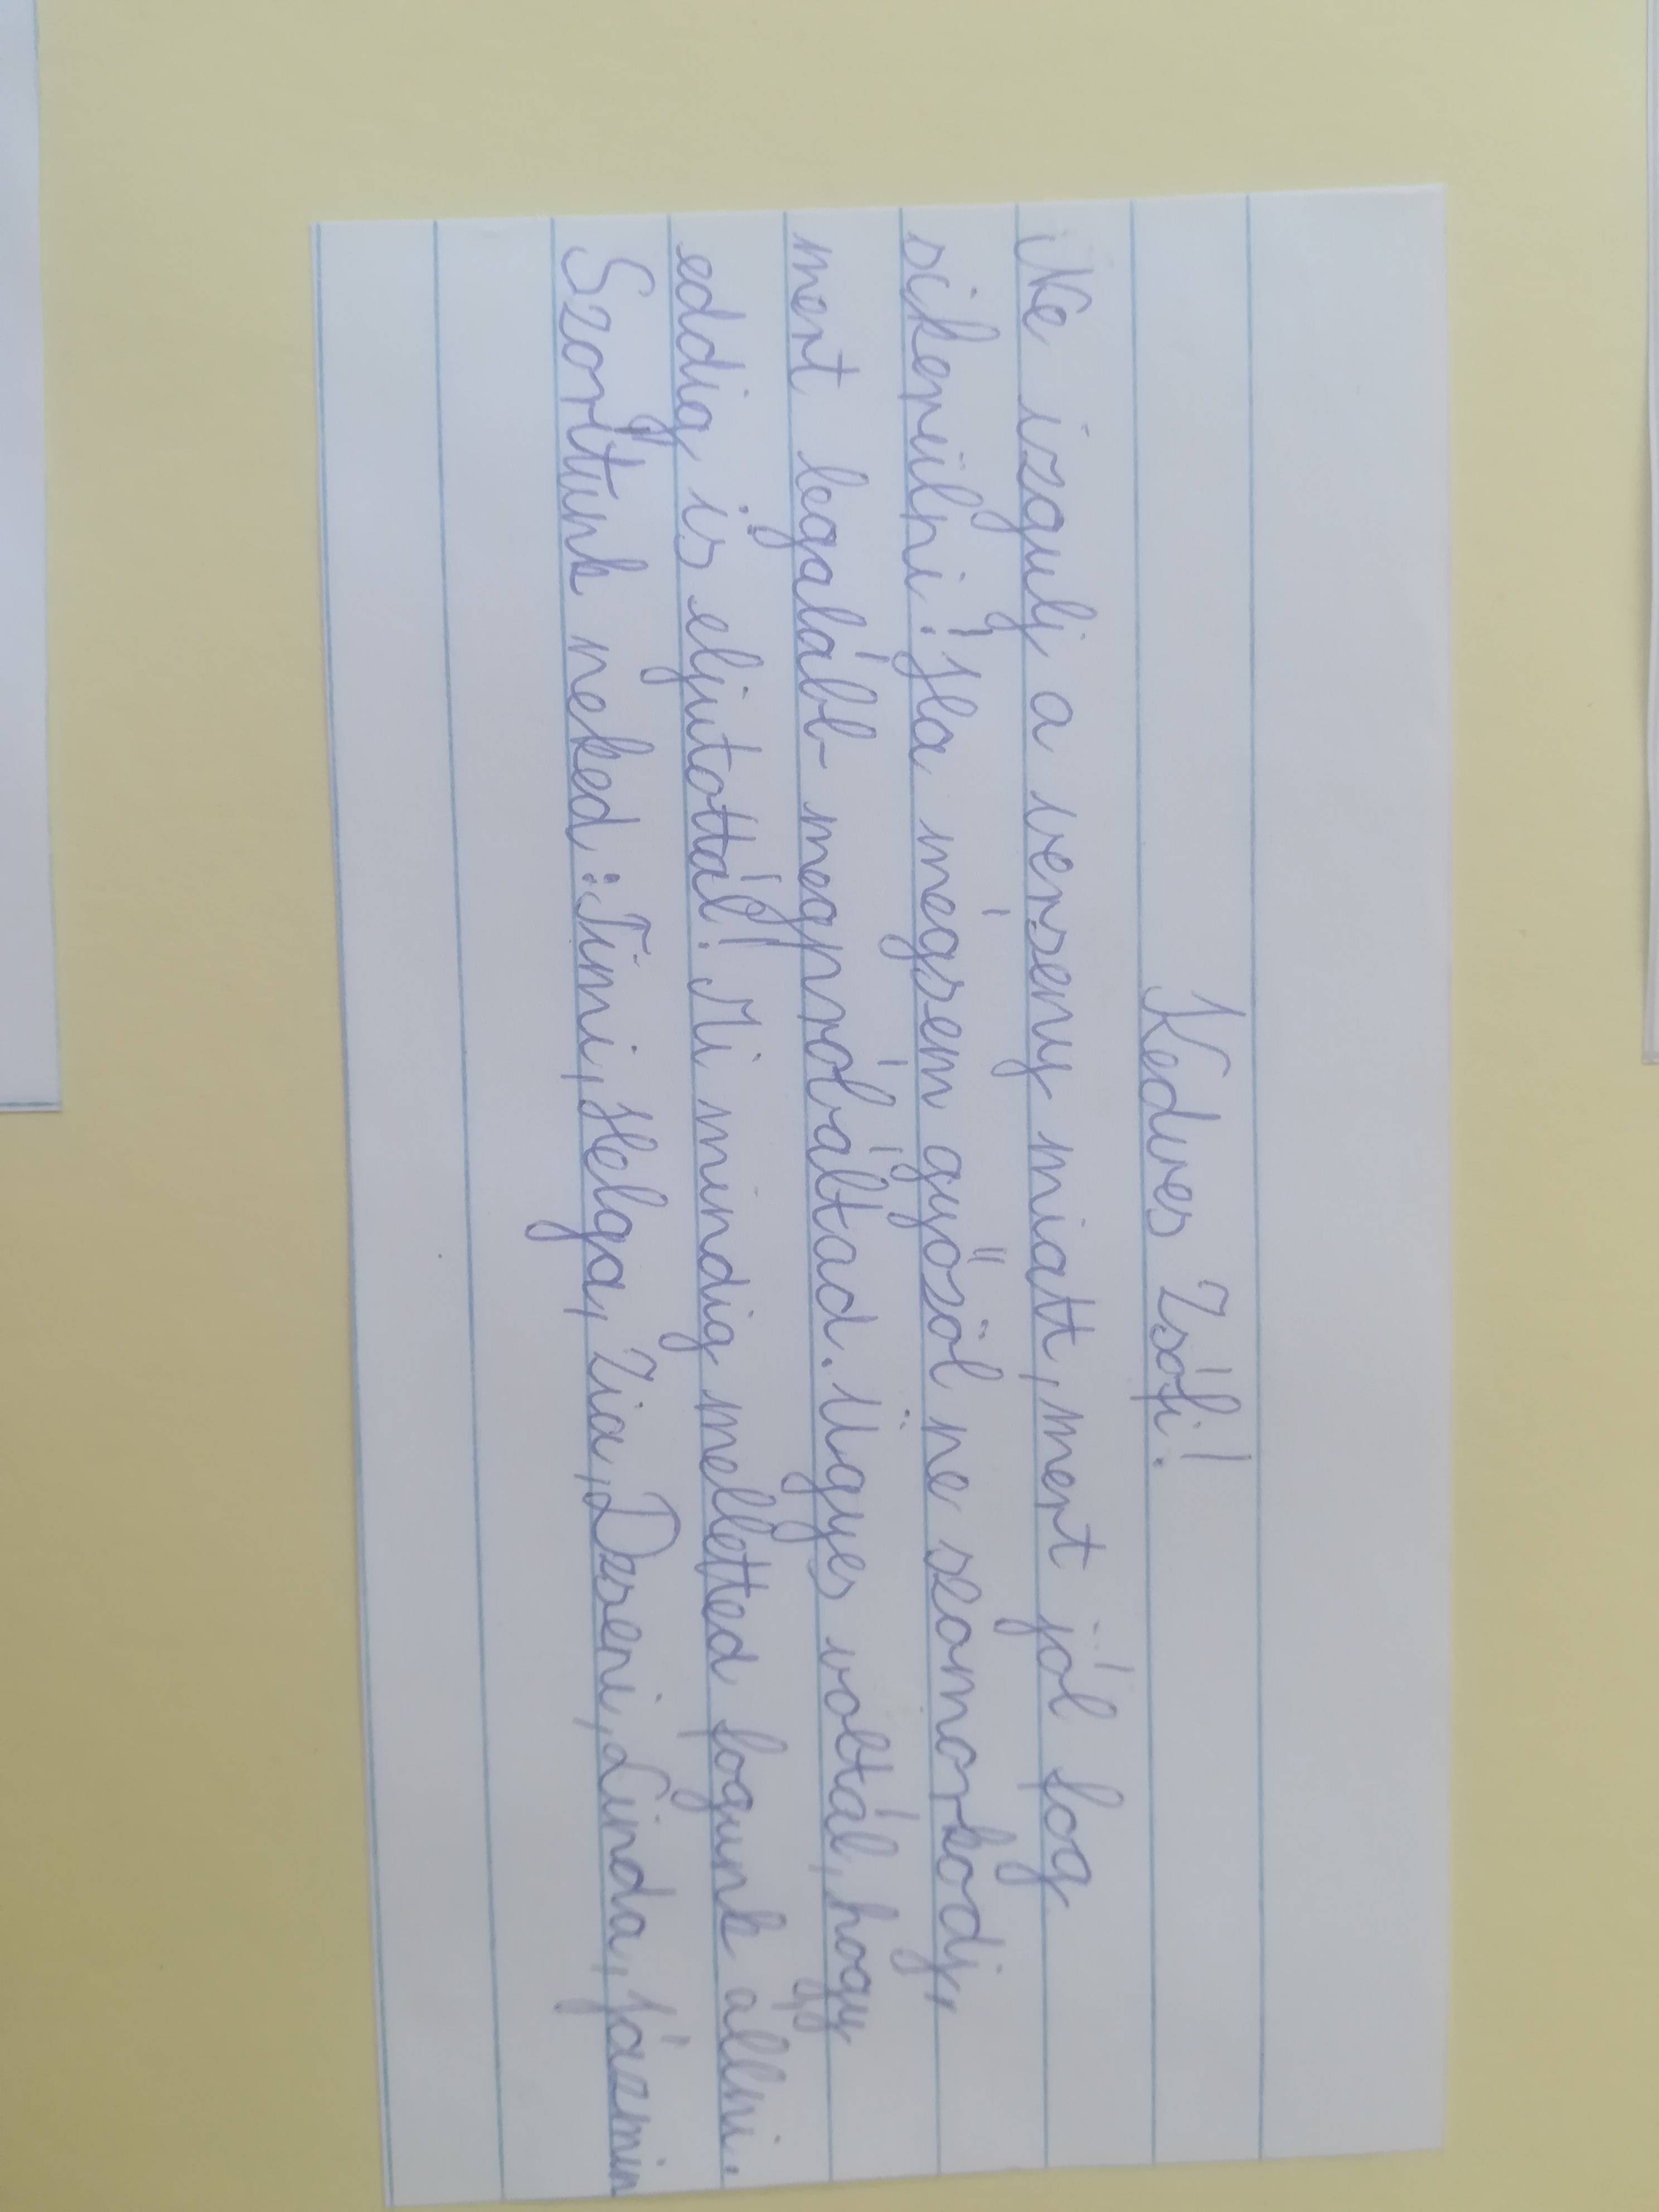 Kedves Zsófi!
Ne izgulj a verseny miatt, mert jól fog
sikerülni! Ha mégsem győzöl ne szomorkodj,
mert legalább megpróbáltad. Ügyes voltál, hogy
eddig is eljutottál! Mi mindig melletted fogunk állni.
Szorítunk neked: Timi, Helga, Zia, Dzseni, Linda, Jázmin